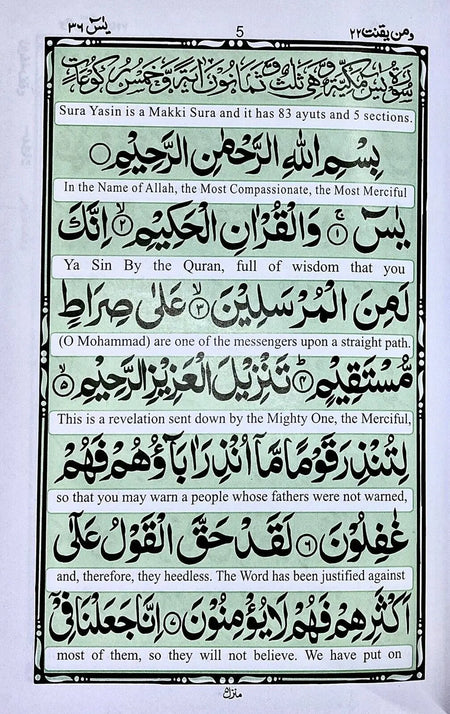 ومن يقنت ٢٢ 5 يٰسٓ ٣٦
سورة يس مكية وهي ثلث وثمانون اية وخمس ركوعات
Sura Yasin is a Makki Sura and it has 83 ayuts and 5 sections.
بِسْمِ اللهِ الرَّحْمٰنِ الرَّحِيْمِ
In the Name of Allah, the Most Compassionate, the Most Merciful
يٰسٓ ۝١ وَالْقُرْاٰنِ الْحَكِيْمِ ۝٢ اِنَّكَ
Ya Sin By the Quran, full of wisdom that you
لَمِنَ الْمُرْسَلِيْنَ ۝٣ عَلٰى صِرَاطٍ
(O Mohammad) are one of the messengers upon a straight path.
مُّسْتَقِيْمٍ ۝٤ تَنْزِيْلَ الْعَزِيْزِ الرَّحِيْمِ ۝٥
This is a revelation sent down by the Mighty One, the Merciful,
لِتُنْذِرَ قَوْمًا مَّآ اُنْذِرَ اٰبَآؤُهُمْ فَهُمْ
so that you may warn a people whose fathers were not warned,
غٰفِلُوْنَ ۝٦ لَقَدْ حَقَّ الْقَوْلُ عَلٰٓى
and, therefore, they heedless. The Word has been justified against
اَكْثَرِهِمْ فَهُمْ لَا يُؤْمِنُوْنَ ۝٧ اِنَّا جَعَلْنَا فِيْٓ
most of them, so they will not believe. We have put on
منزل ٥